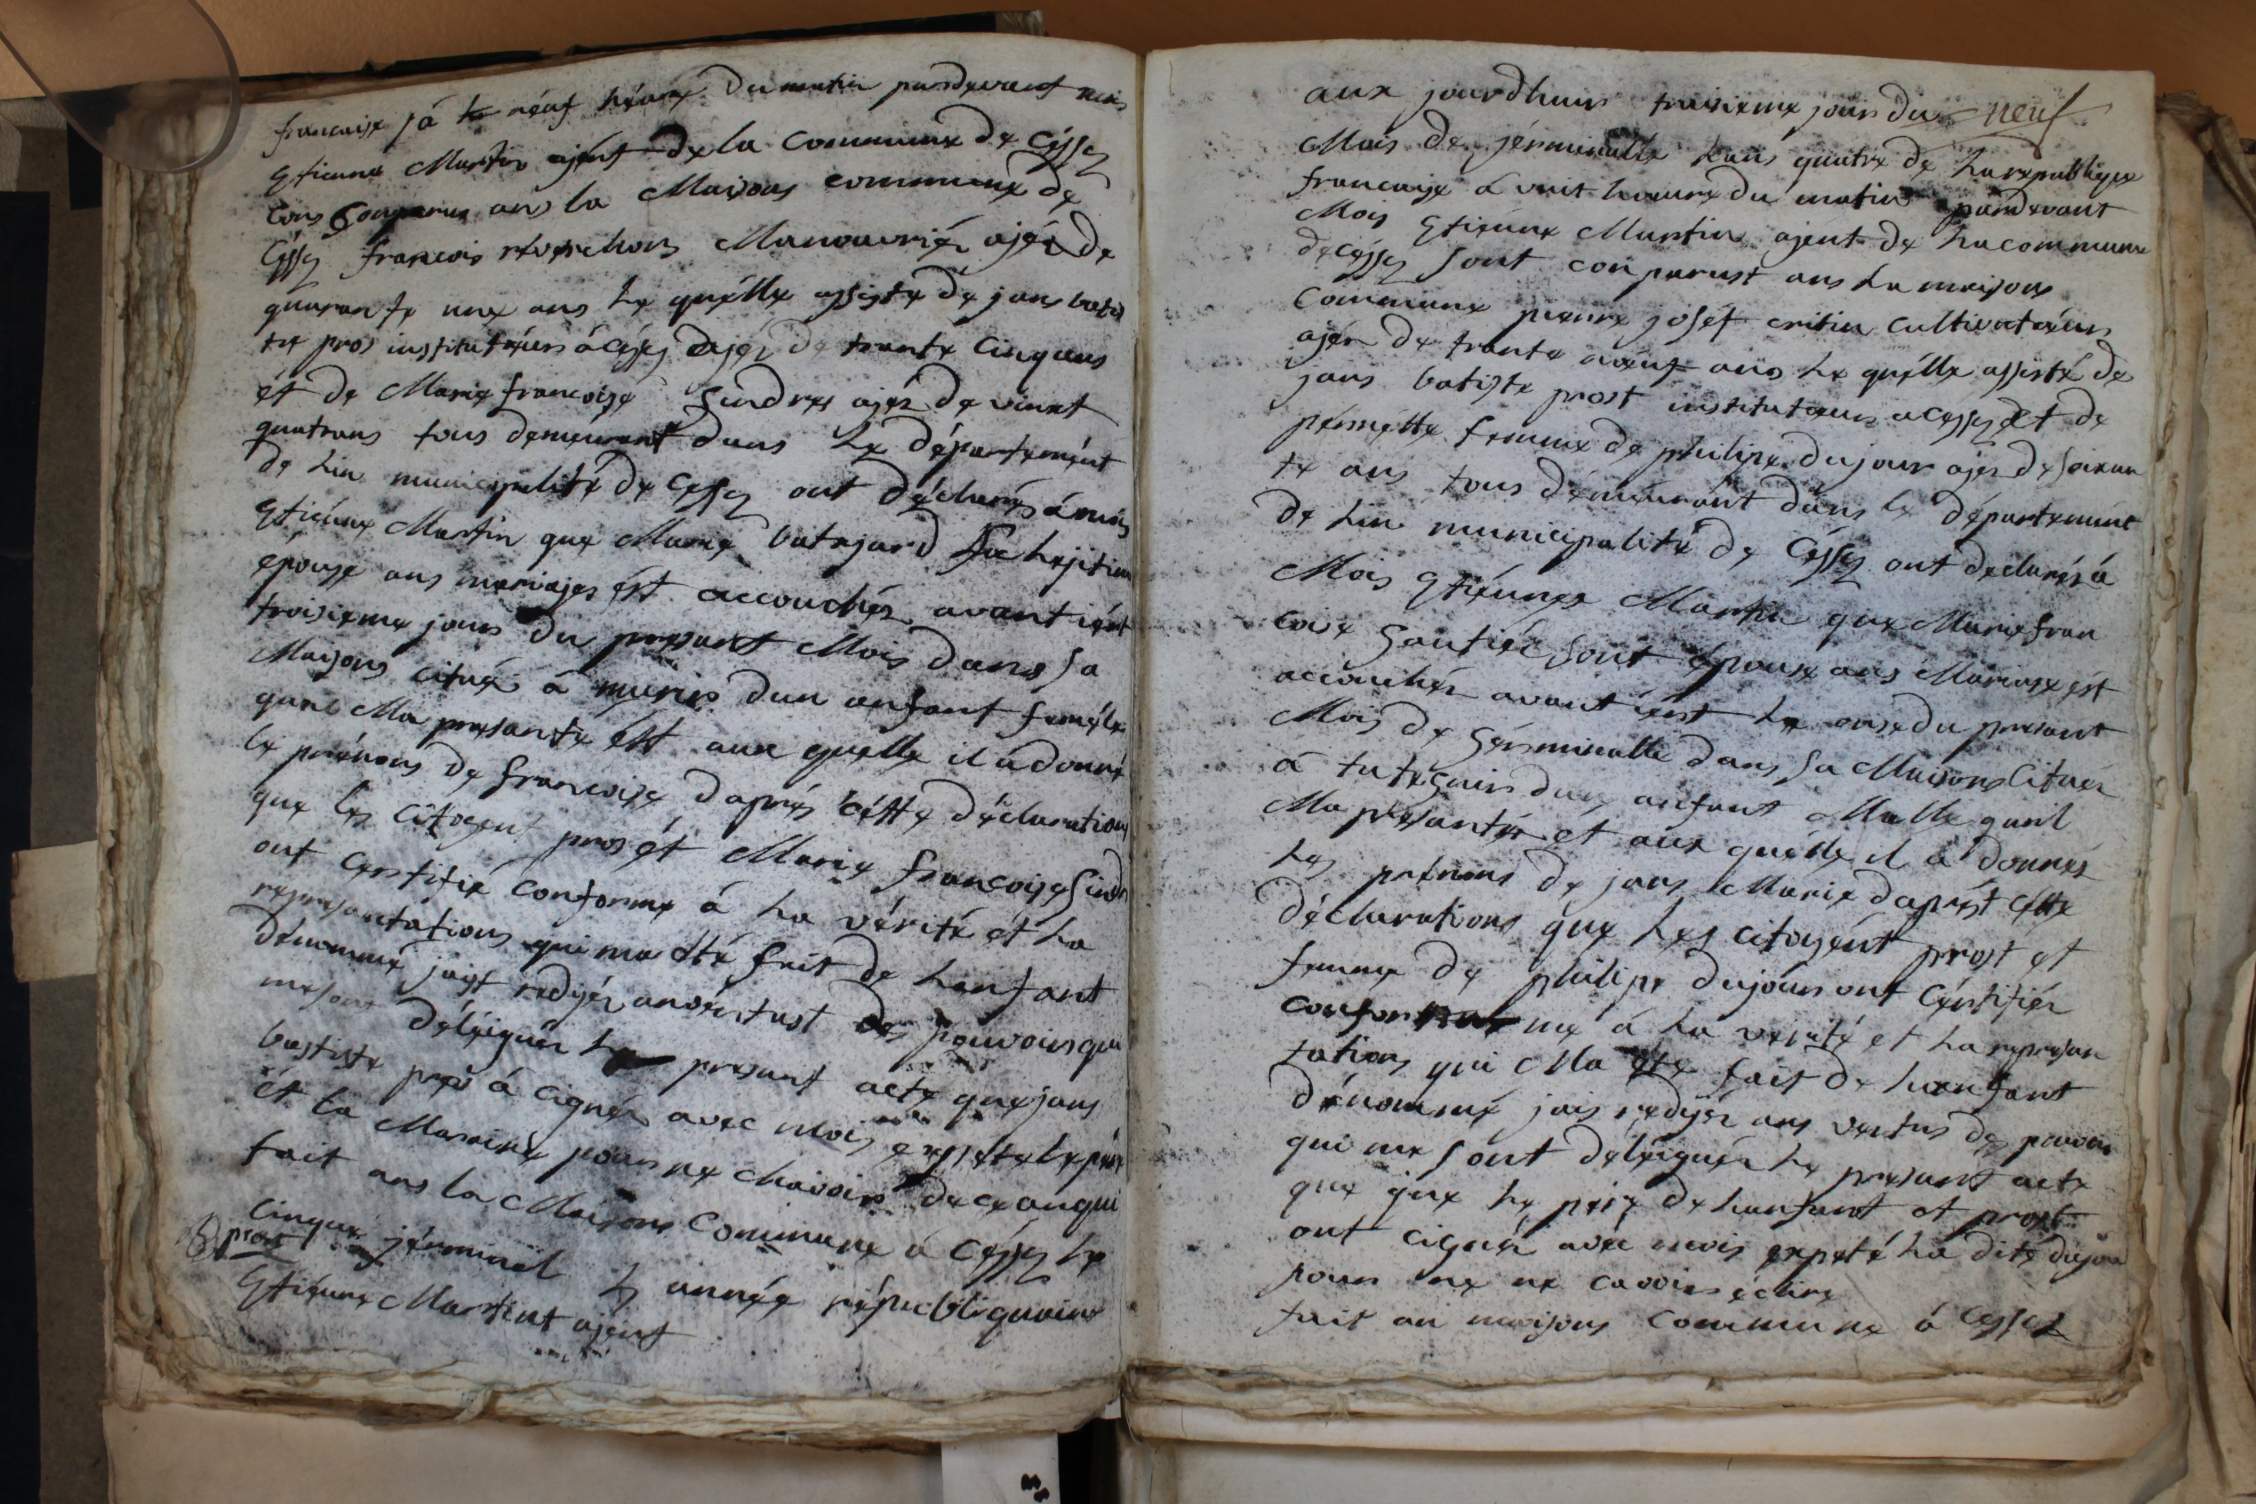 francaise sà neuf heure Du matin pardevant mois
Etienne Martin ajent de la Commune De Césse
Cons Conparus ans la Maisons commune de
Césse francois réverchons Manouvriér ajér de
quaranté une ans Le quélle assisté De jans batis
te pros instituteurs à césse ajér de trante cinq ans
ét de Marie francoise Sindrés ajér de vinnt
quatrans tous demeurant dans le département
de Lin municipalité De Cesse ont Déclarés à mois
Etiénne Martin que Marie batajard Sa Lejitime
épouse ans mariajes ést accouchér avant iért
troisieme jours du présant Mois dans sa
Maisons citué à muris dun anfant femélle
quil Ma presanté ést aux quélle il à donné
le prénons de francoise daprés cétte déclarations
que les citoyent pros ét Marie francoise Sindr
ont Certifié conforme à La vérité ét La
représantations qui ma été fait de Lanfant
dénommé jaist redyér anvértust des pouvoirs qui
me sont déléiguér Le présant acte que jans
bastiste pros à cignér avec mois exseté le pére
ét la Maraine pour ne chavoir de ce anqui
fait ans la Maisons Commune à Césse Le
Cinque jérminal L année républiquaine
B pros
Etiénne Martint ajent
aux jourdhuis traisieme jours du neuf
Mois de jérminalle Lans quatre de La republique
francaise à vuit heure du matin pardevant
Mois Etiénne Martin ajent de La commune
de césse sont conparust ans La maisons
Commune pierre joséf critin cultivateurs
ajér de trante neuf ans Le quélle assisté de
jans batiste prost instituteurs a cesse Et de
pérnétte femme de philipe dujour ajér de soixan
te ans tous démeurant dans le département
de Lin municipalité de Césse ont declarés à
Mois Etiénne Martin que Marie fran
coise Gautiér sont épouse ans Mariaje ést
accouchér avant iért Le onse du present
Mois de Gérminalle dans sa Maisons cituér
à dun anfant Malle quil
Ma présantér et aux quélle il a donnés
Les prénons de jans Marie daprést cétte
déclarations que Les citoyént prost et
femme de philipe dujour ont Cértifiér
confor me à La verité et La represan
tations qui Ma été fait de Lanfant
dénommé jais redyér ans vertus des pouvoir
qui me sont deléiguér Le présant acte
que que Le pére de Lanfant et prost
ont cignér avec mois exseté La dite dujour
pour ne ne cavoir écrire
fait an maisons Commune à Césse